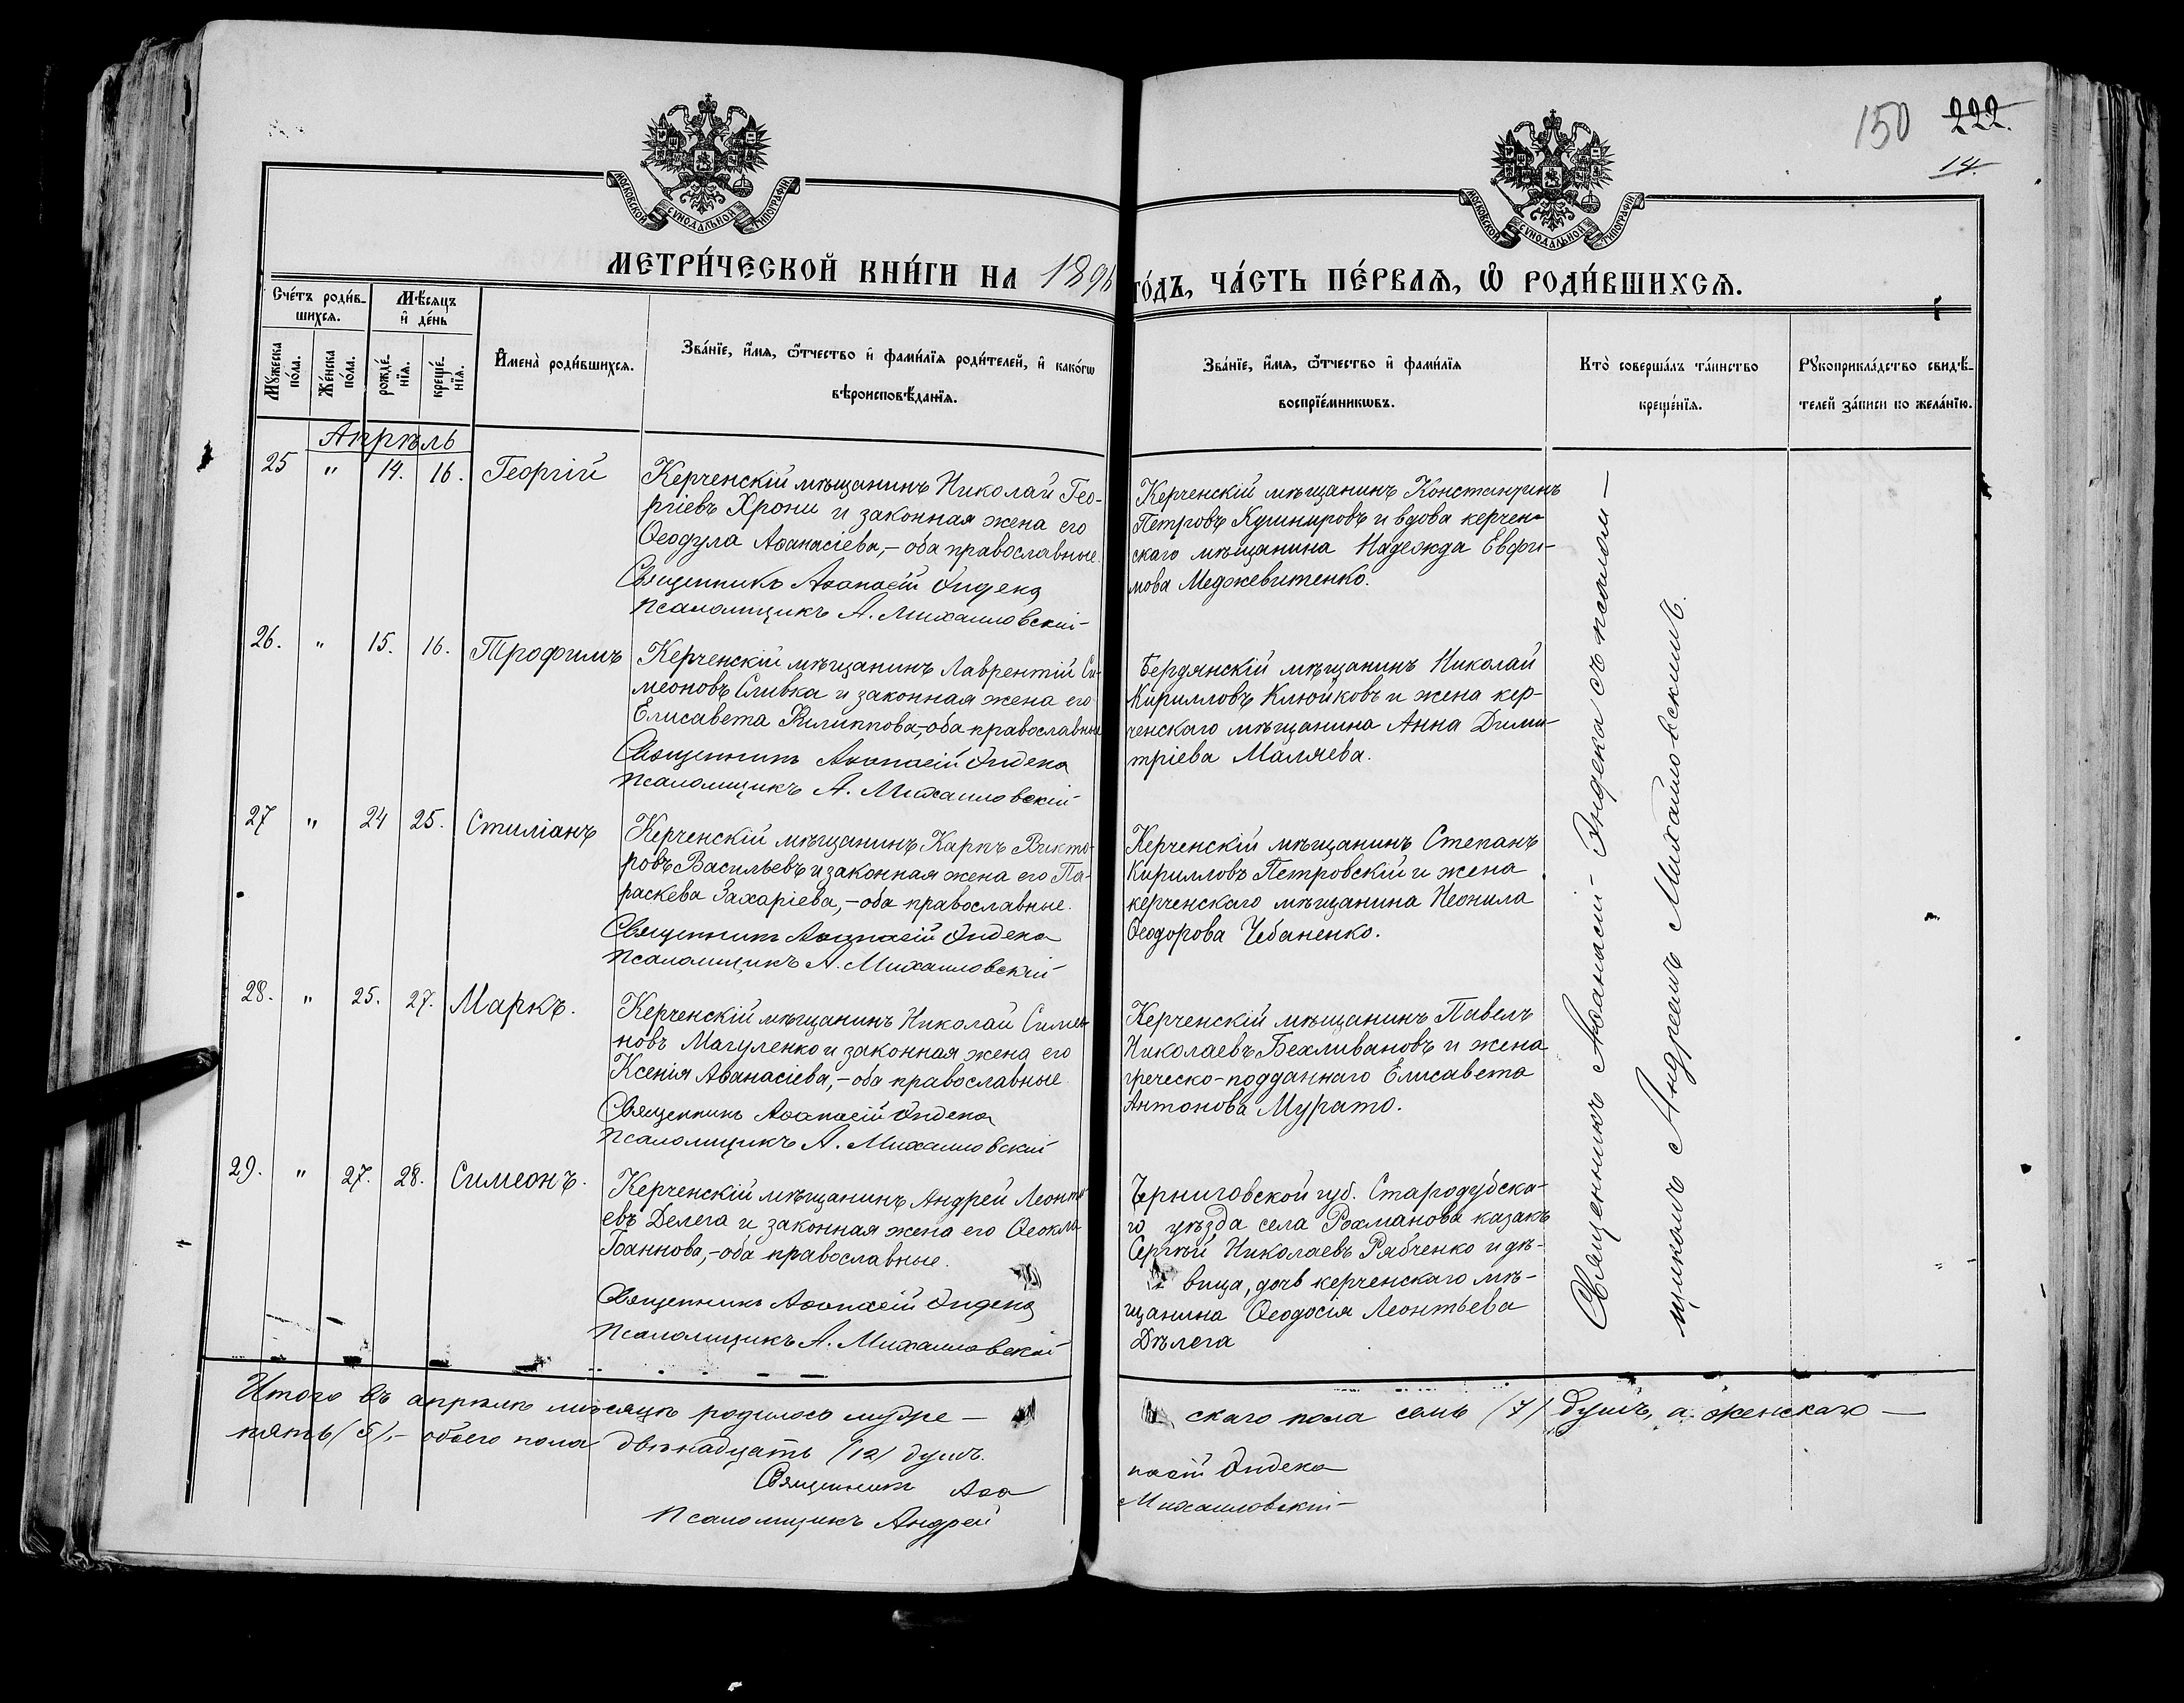 150 222.
14.
МОСКОВСКОЙ СУНОДАЛЬНОЙ ТИПОГРАФІИ
МОСКОВСКОЙ СУНОДАЛЬНОЙ ТИПОГРАФІИ
МЕТРИ́ЧЕСКОЙ КНИ́ГИ НА 1896
ГО́ДЪ, ЧА́СТЬ ПЕ́РВАѦ, Ѽ РОДИ́ВШИХСѦ.
Сче́тъ роди́в-
шихсѧ.
Мѣ́сѧцъ
и҆ де́нь
Мꙋ́жеска
по́ла.
Же́нска
по́ла.
рожде́-
нїѧ.
креще́-
нїѧ.
И҆мена̀ роди́вшихсѧ.
Зва́нїе, и҆́мѧ, ѻ҆́тчество и҆ фами́лїѧ роди́телей, и҆ како́гѡ
вѣроисповѣ́данїѧ.
Зва́нїе, и҆́мѧ, ѻ҆́тчество и҆ фами́лїѧ
воспрїе́мникѡвъ.
Кто̀ соверша́лъ та́инство
креще́нїѧ.
Рꙋкоприкла́дство свидѣ́-
телей за́писи по жела́нїю.
Апрѣль
25 " 14. 16. Георгій
Керченскій мѣщанинъ Николай Гео-
ргіевъ Хрони и законная жена его
Ѳеодула Аѳанасіева,- оба православные.
Священникъ Аѳанасій Индека
Псаломщикъ А. Михаиловскій
Керченскій мѣщанинъ Константинъ
Петровъ Кушнировъ и вдова керчен-
скаго мѣщанина Надежда Евфи-
мова Меджевитенко.
26. " 15. 16. Трофимъ
Керченскій мѣщанинъ Лаврентій Си-
меоновъ Сливка и законная жена его
Елисавета Филиппова,-оба православные
Священникъ Аѳанасій Индека
Псаломщикъ А. Михаиловскій
Бердянскій мѣщанинъ Николай
Кирилловъ Клюйковъ и жена кер-
ченскаго мѣщанина Анна Дими-
тріева Маляева.
27 " 24 25. Стиліанъ
Керченскій мѣщанинъ Карпъ Викто-
ровъ Васильевъ и законная жена его Па-
раскева Захаріева,-оба православные.
Священникъ Аѳанасій Индека
Псаломщикъ А. Михаиловскій
Керченскій мѣщанинъ Степанъ
Кирилловъ Петровскій и жена
керченскаго мѣщанина Неонила
Ѳеодорова Чебаненко.
28. " 25. 27. Маркъ.
Керченскій мѣщанинъ Николай Симео-
новъ Магуленко и законная жена его
Ксенія Аѳанасіева,-оба православные.
Священникъ Аѳанасій Индека
Псаломщикъ А. Михаиловскій
Керченскій мѣщанинъ Павелъ
Николаевъ Бехливановъ и жена
греческо-подданнаго Елисавета
Антонова Мурато.
29. " 27. 28. Симеонъ.
Керченскій мѣщанинъ Андрей Леонть-
евъ Делега и законная жена его
Іоаннова,-оба православные.
Священникъ Аѳанасій Индека
Псаломщикъ А. Михаиловскій
Черниговской губ. Стародубска-
го уѣзда села Рохманова казакъ
Сергѣй Николаевъ Рябченко и дѣ-
вица, дочь керченскаго мѣ-
щанина Ѳеодосія Леонтьева
Дѣлега
Священникъ Аѳанасій Индека съ псалом-
щикомъ Андреемъ Михаиловскимъ.
Итого въ апрѣлѣ мѣсяцѣ родилось муже-
скаго пола семь (7) душъ, а женскаго -
пять (5),- обоего пола двѣнадцать (12) душъ.
Священникъ Аѳа
насій Индека
Псаломщикъ Андрей
Михаиловскій